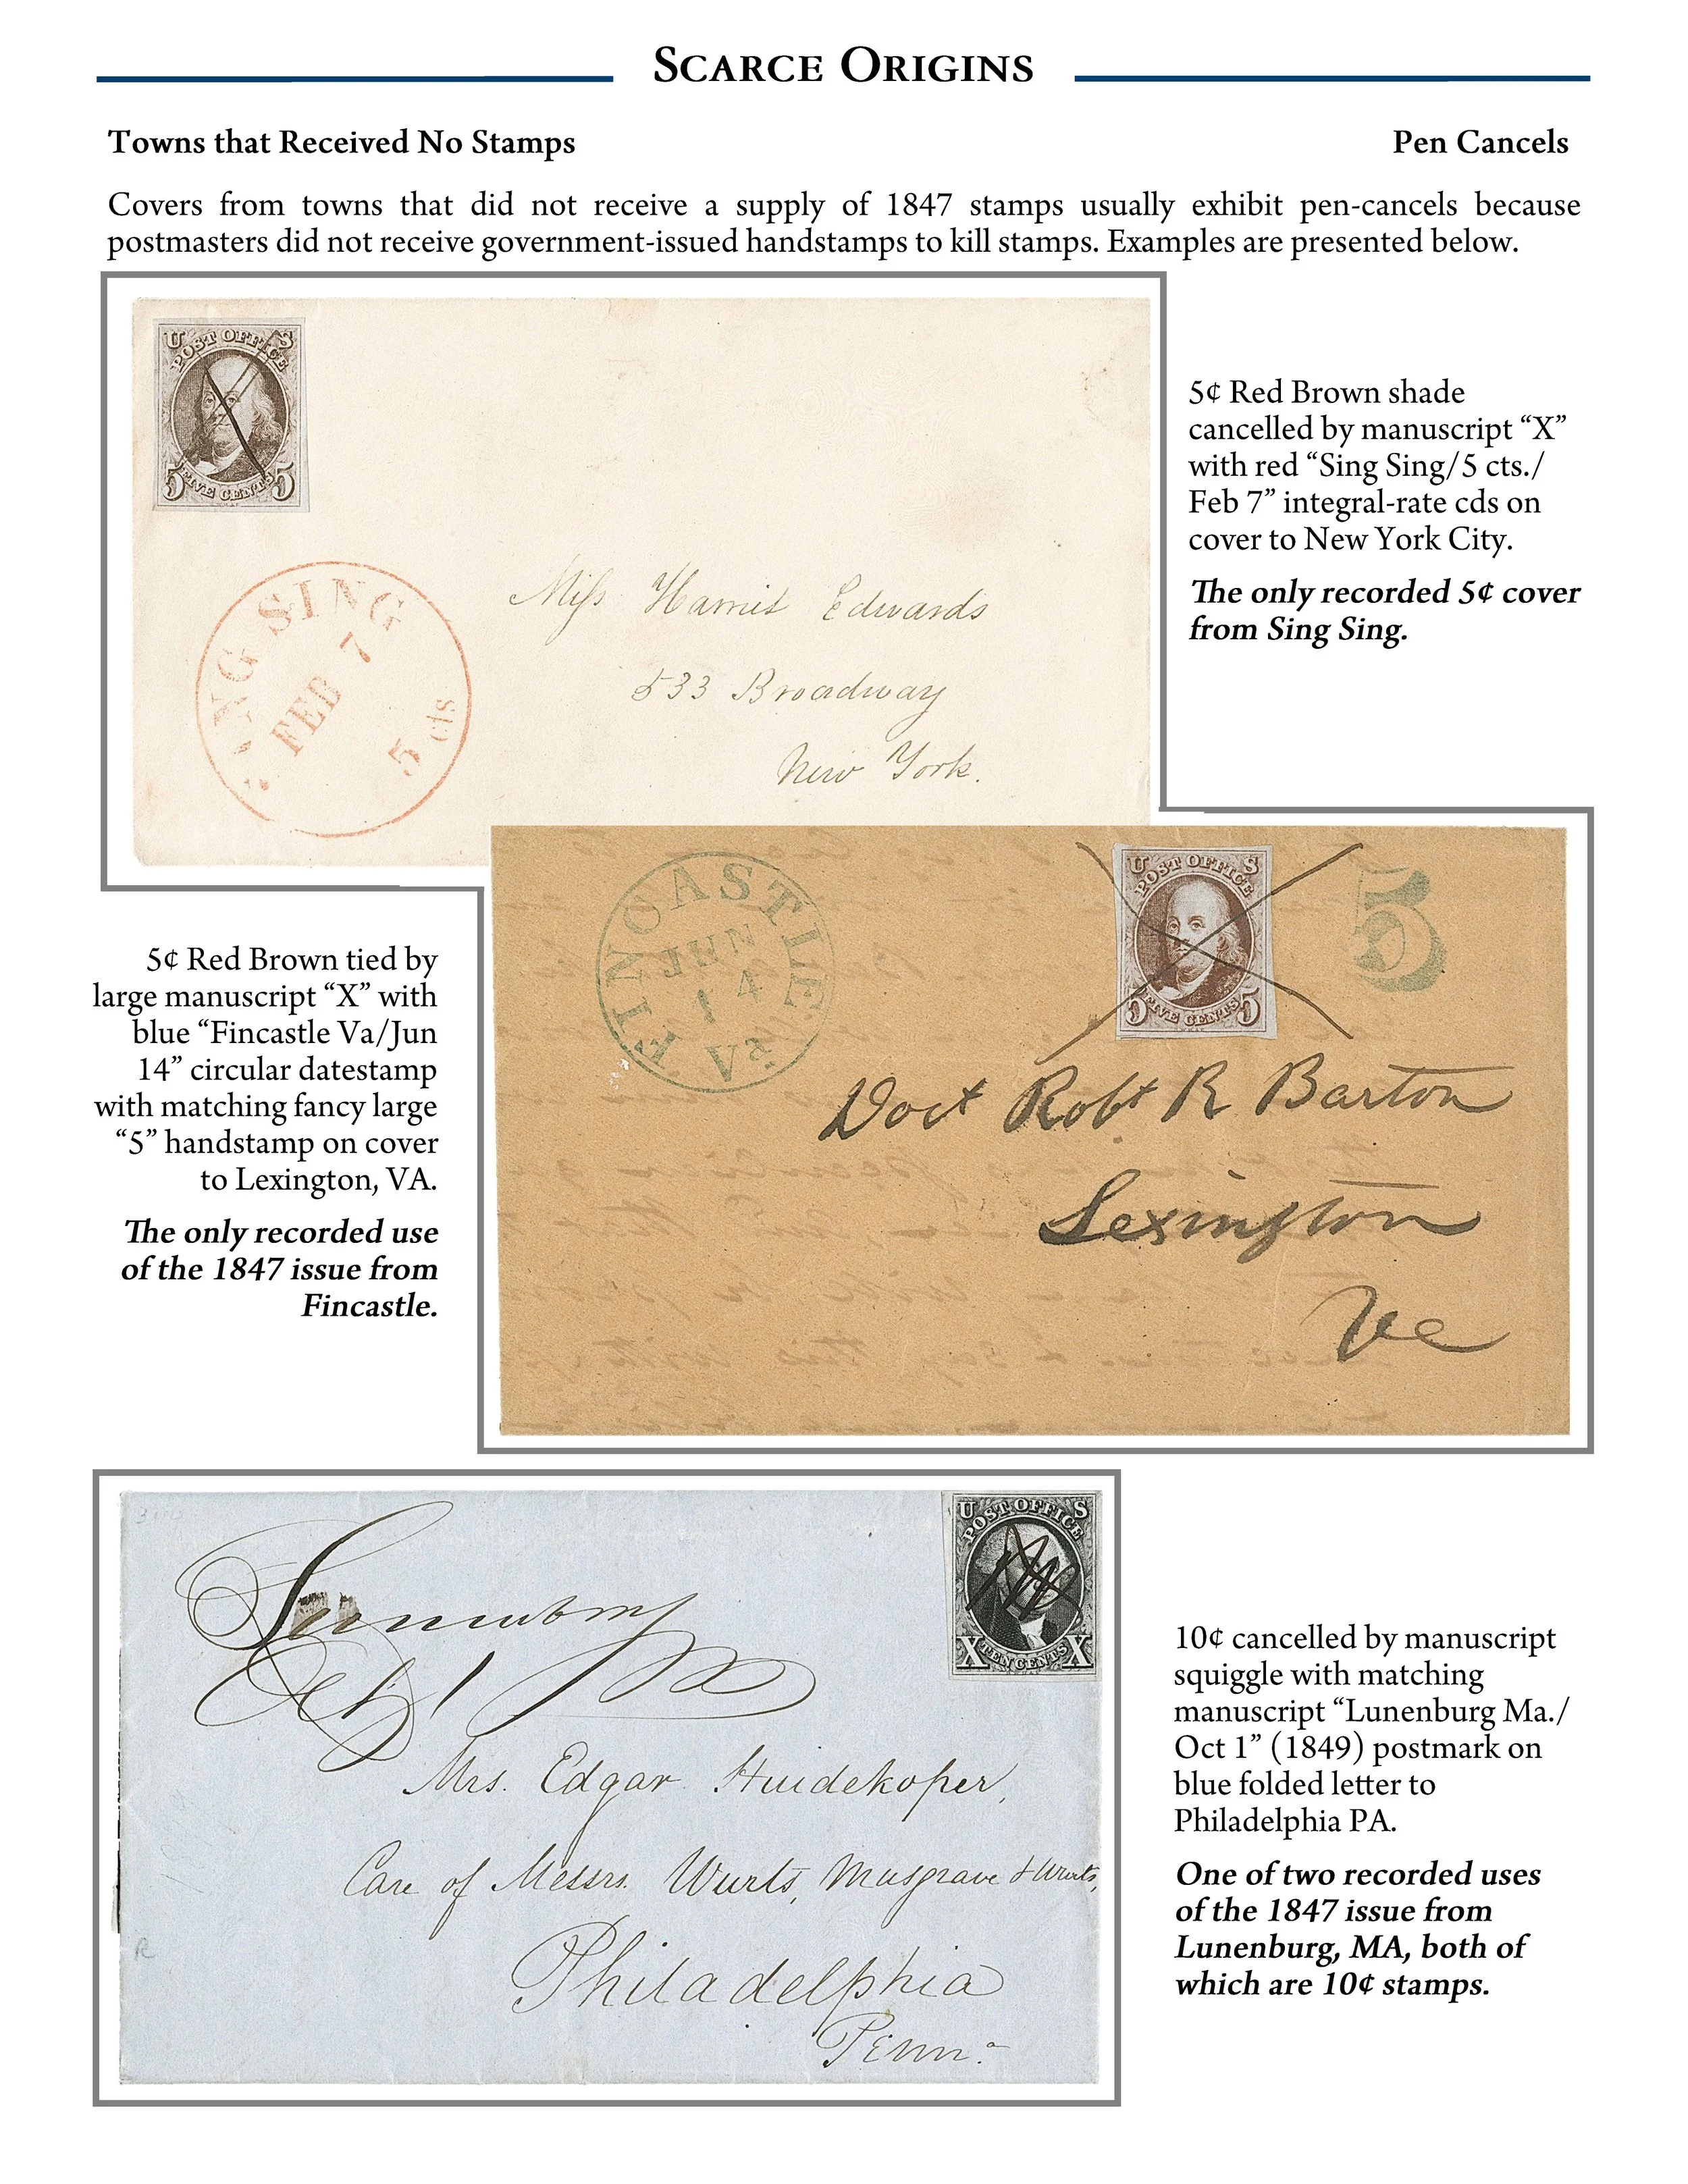 SCARCE ORIGINS
Towns that Received No Stamps
Pen Cancels
Covers from towns that did not receive a supply of 1847 stamps usually exhibit pen-cancels because
postmasters did not receive government-issued handstamps to kill stamps. Examples are presented below.
U S
POST OFFICE
5 FIVE CENTS 5
SING SING
FEB 7
5 cts
Miss Harriet Edwards
533 Broadway
New York.
5¢ Red Brown shade
cancelled by manuscript “X”
with red “Sing Sing/5 cts./
Feb 7” integral-rate cds on
cover to New York City.
The only recorded 5¢ cover
from Sing Sing.
5¢ Red Brown tied by
large manuscript “X” with
blue “Fincastle Va/Jun
14” circular datestamp
with matching fancy large
“5” handstamp on cover
to Lexington, VA.
The only recorded use
of the 1847 issue from
Fincastle.
FINCASTLE
JUN
14
Va
U S
POST OFFICE
5 FIVE CENTS 5
5
Doct Robt R Barton
Lexington
Va
Lunenburg
Oct 1 Ma
U S
POST OFFICE
X TEN CENTS X
Mrs. Edgar Huidekoper,
Care of Messrs. Wurts, Musgrave & Wurts,
Philadelphia
Penna
10¢ cancelled by manuscript
squiggle with matching
manuscript “Lunenburg Ma./
Oct 1” (1849) postmark on
blue folded letter to
Philadelphia PA.
One of two recorded uses
of the 1847 issue from
Lunenburg, MA, both of
which are 10¢ stamps.